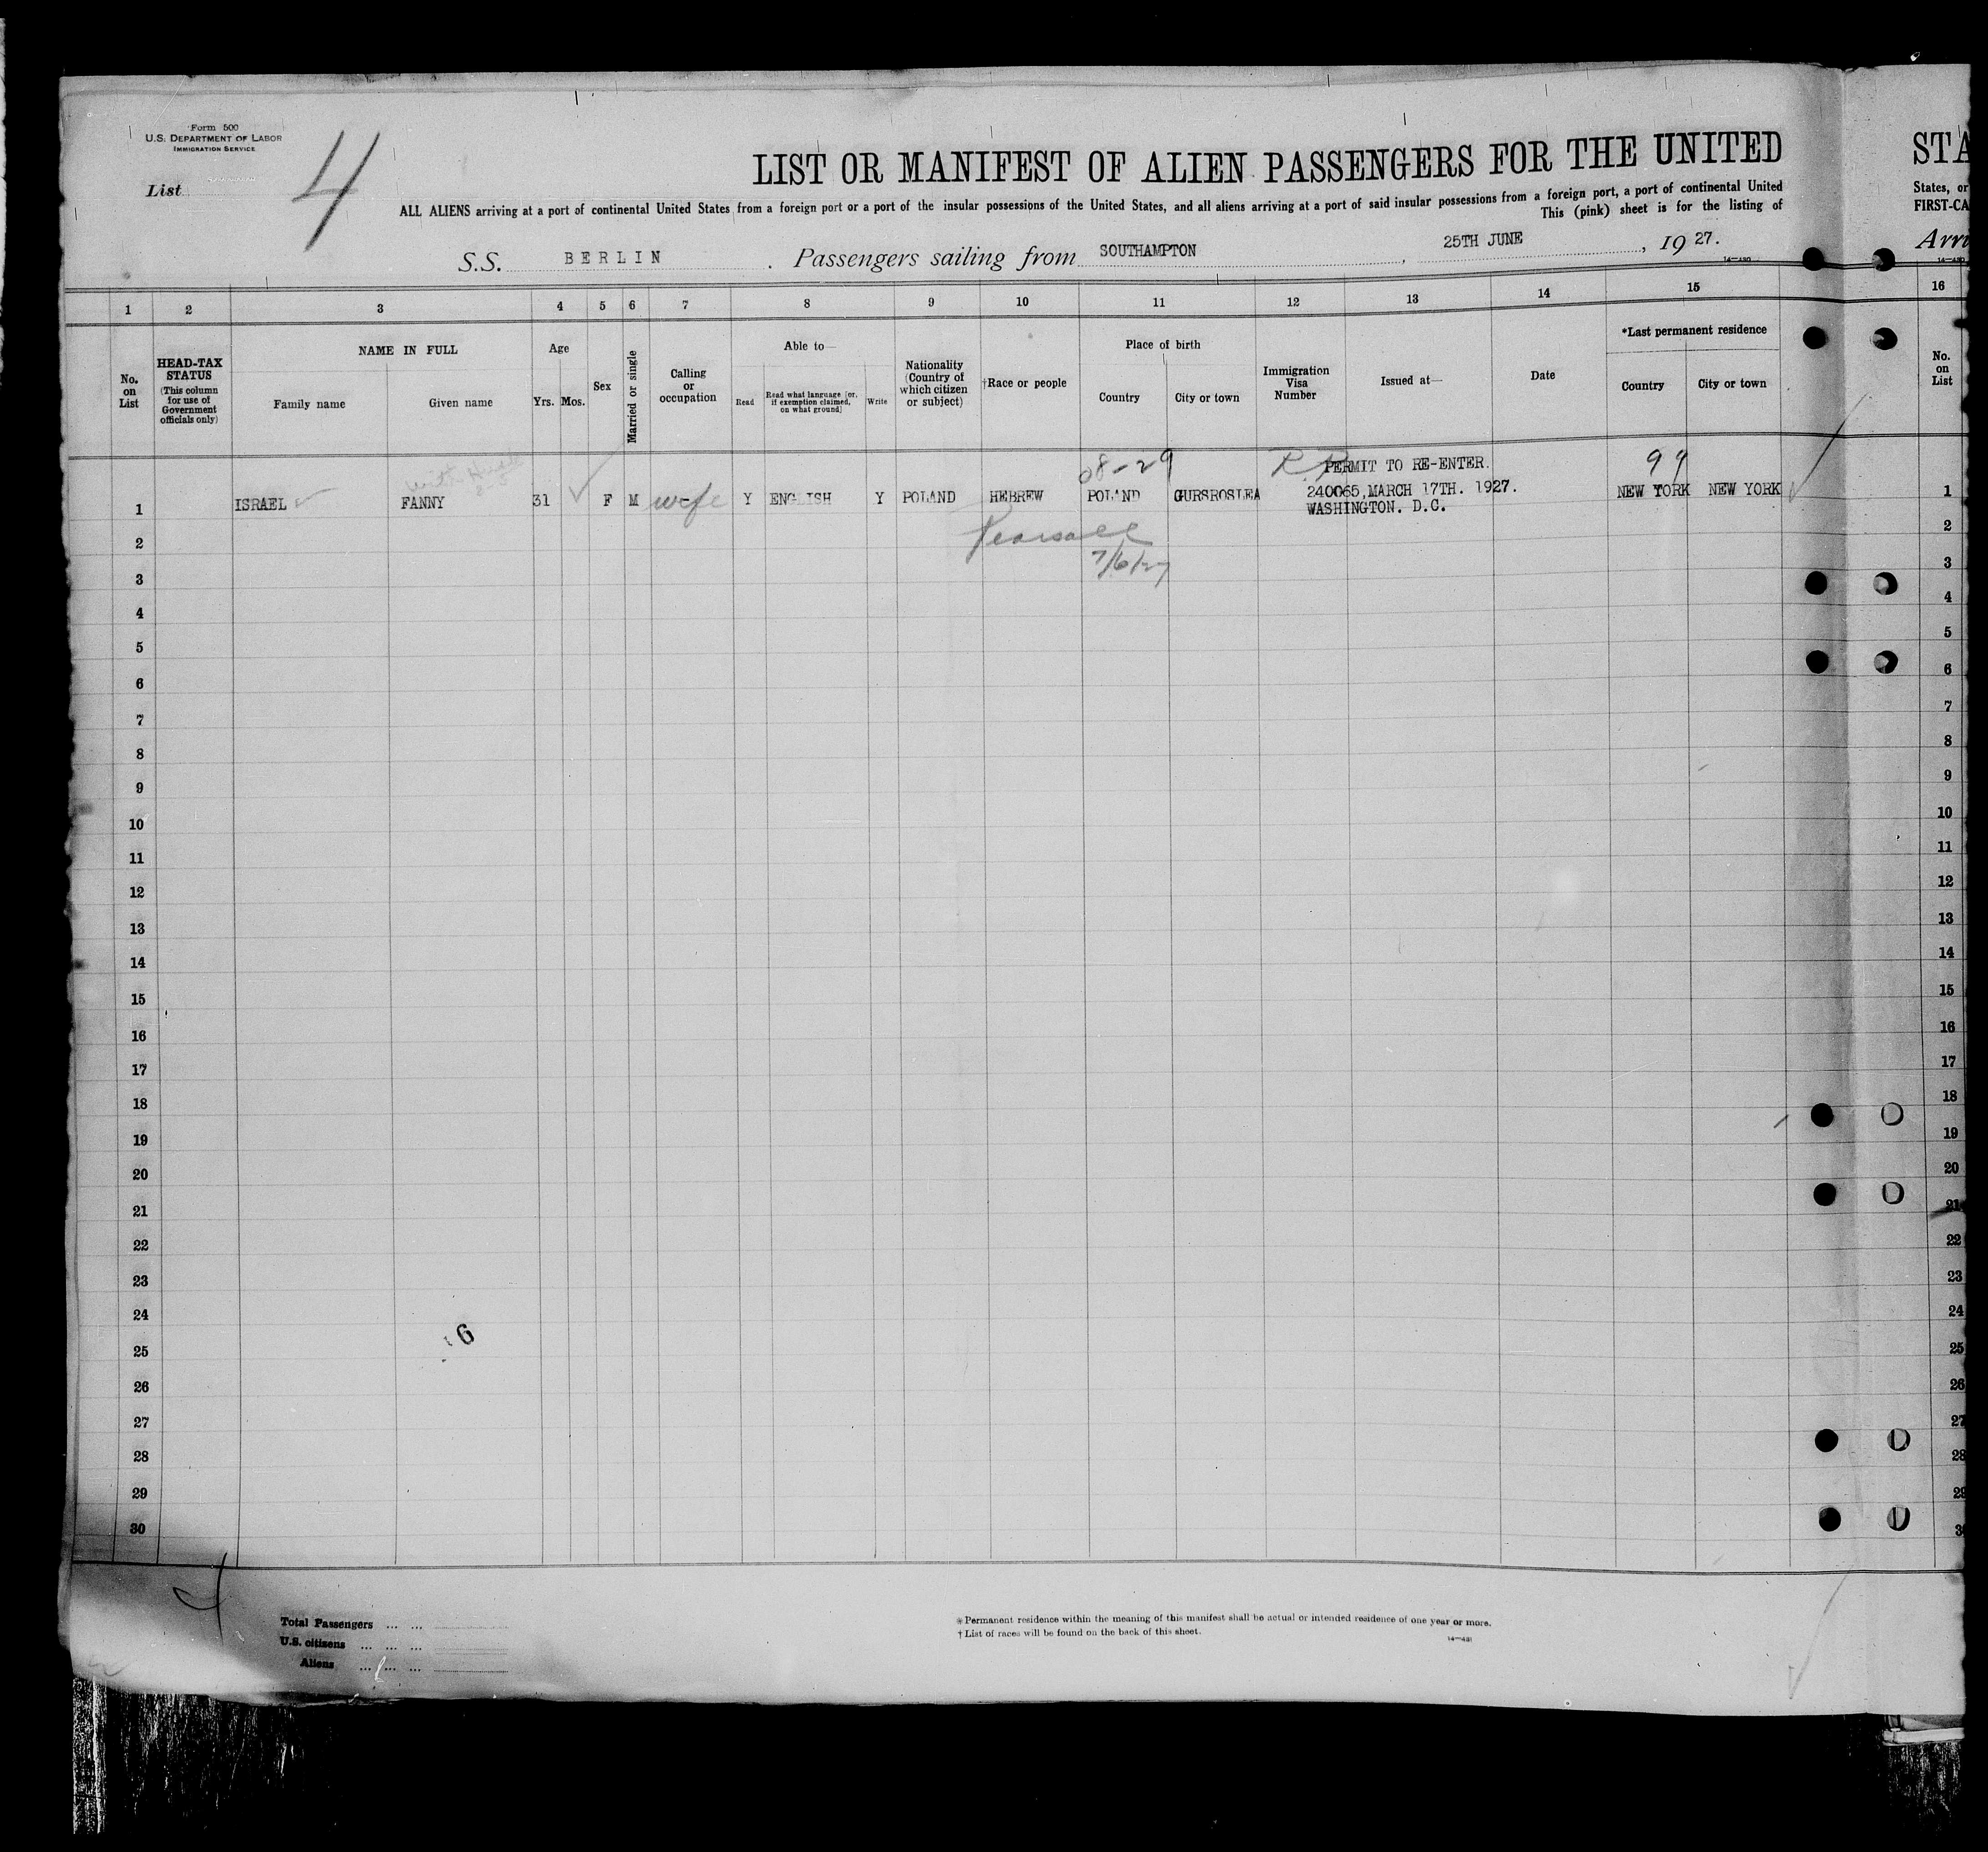 Form 500
U.S. DEPARTMENT OF LABOR
IMMIGRATION SERVICE
List 4
LIST OR MANIFEST OF ALIEN PASSENGERS FOR THE UNITED
ALL ALIENS arriving at a port of continental United States from a foreign port or a port of the insular possessions of the United States, and all aliens arriving at a port of said insular possessions from a foreign port, a port of continental United
This (pink) sheet is for the listing of
S.S. BERLIN. Passengers sailing from SOUTHAMPTON, 25TH JUNE, 1927.
14—430
STA
States, or
FIRST-CA
Arri
14—430
1 2 3 4 5 6 7 8 9 10 11 12 13 14 15 16
No. on List
HEAD-TAX STATUS (This column for use of Government officials only)
NAME IN FULL
Family name
Given name
Age
Yrs. Mos.
Sex
Married or single
Calling or occupation
Able to—
Read
Read what language [or, if exemption claimed, on what ground]
Write
Nationality (Country of which citizen or subject)
†Race or people
Place of birth
Country
City or town
Immigration Visa Number
Issued at—
Date
*Last permanent residence
Country
City or town
No. on List
08-29 PERMIT TO RE-ENTER. 99
1 ISRAEL FANNY 31 F M wife Y ENGLISH Y POLAND HEBREW POLAND GURSROSLEA 240065, MARCH 17TH. 1927. NEW YORK NEW YORK 1
WASHINGTON. D.C.
2 Pearsall 2
3 7/6/27 3
4 4
5 5
6 6
7 7
8 8
9 9
10 10
11 11
12 12
13 13
14 14
15 15
16 16
17 17
18 18
19 19
20 20
21 21
22 22
23 23
24 24
6
25 25
26 26
27 27
28 28
29 29
30 30
Total Passengers ... ...
U.S. citizens ... ... ...
Aliens ... ... ...
*Permanent residence within the meaning of this manifest shall be actual or intended residence of one year or more.
†List of races will be found on the back of this sheet.
14—431